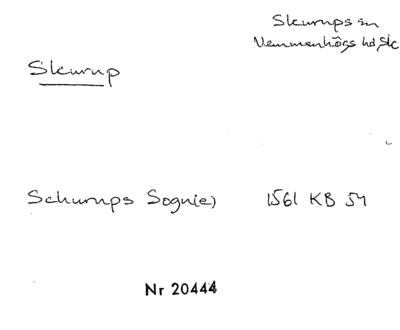 Skurups sn
Vemmenhögs hd, Sk
Skurup
Schurups Sognie) 1561 KB 54
Nr 20444